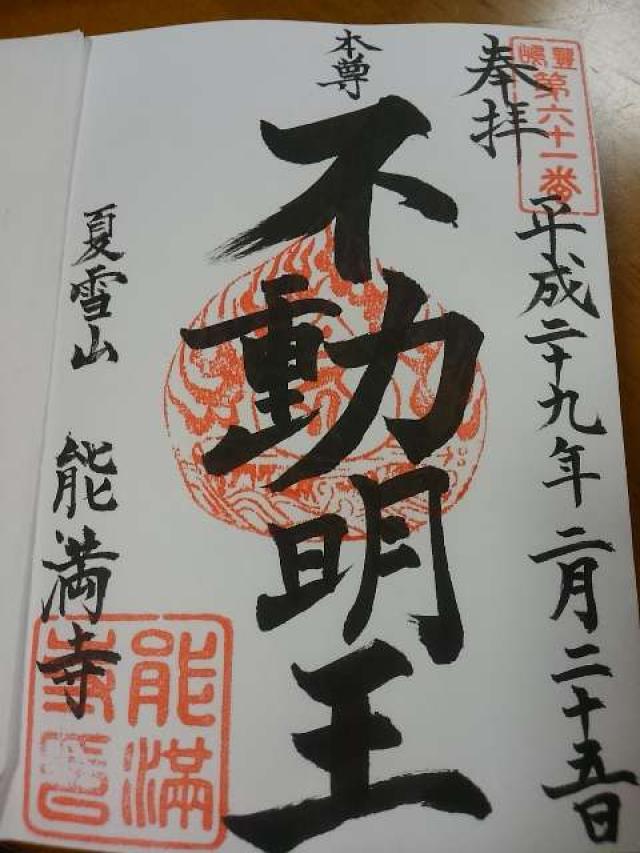 豊嶋
第六十一番
奉拝
平成二十九年二月二十五日
本尊
不動明王
夏雪山
能満寺
能満
寺